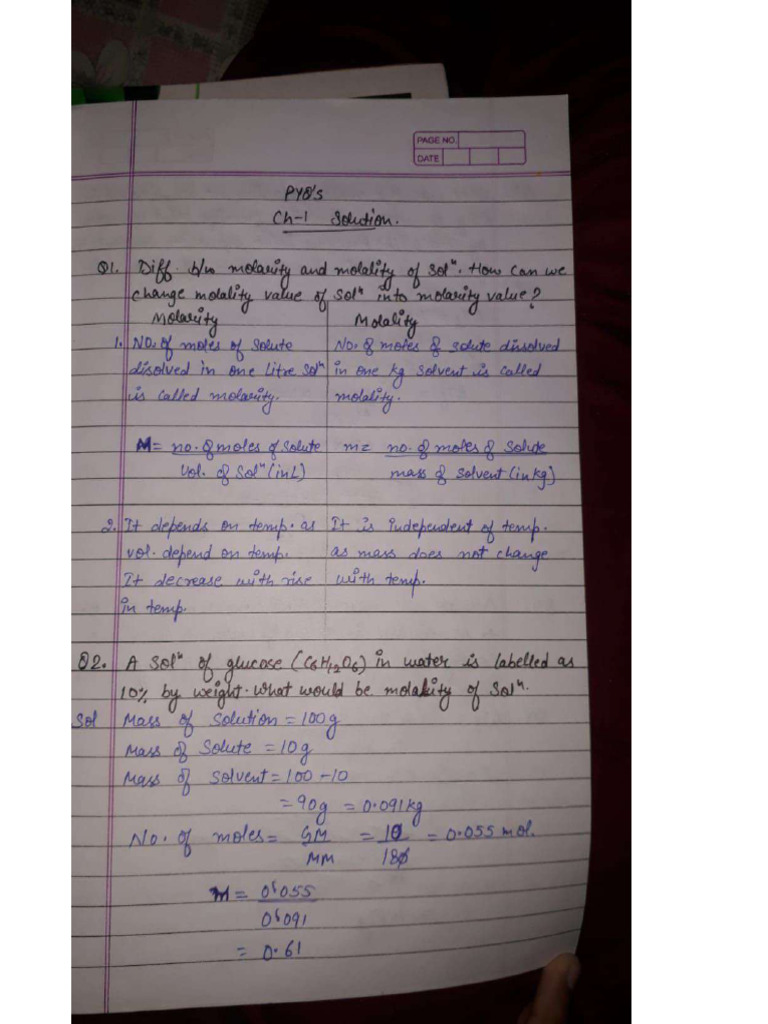 PAGE NO.
DATE
PYQ's
Ch-1 Solution.
Q1. Diff. b/w molarity and molality of solⁿ. How can we
change molality value of solⁿ into molarity value?
Molarity Molality
1. No. of moles of solute No. of moles of solute dissolved
disolved in one litre solⁿ in one kg solvent is called
is called molarity. molality.
M = no. of moles of solute m = no. of moles of solute
vol. of solⁿ (in L) mass of solvent (in kg)
2. It depends on temp. as It is independent of temp.
vol. depend on temp. as mass does not change
It decrease with rise with temp.
in temp.
Q2. A solⁿ of glucose (C6H12O6) in water is labelled as
10% by weight. what would be molality of solⁿ.
Sol Mass of solution = 100g
Mass of solute = 10g
Mass of solvent = 100 - 10
= 90g = 0.091kg
No. of moles = GM = 10 = 0.055 mol.
MM 180
M = 0.055
0.091
= 0.61